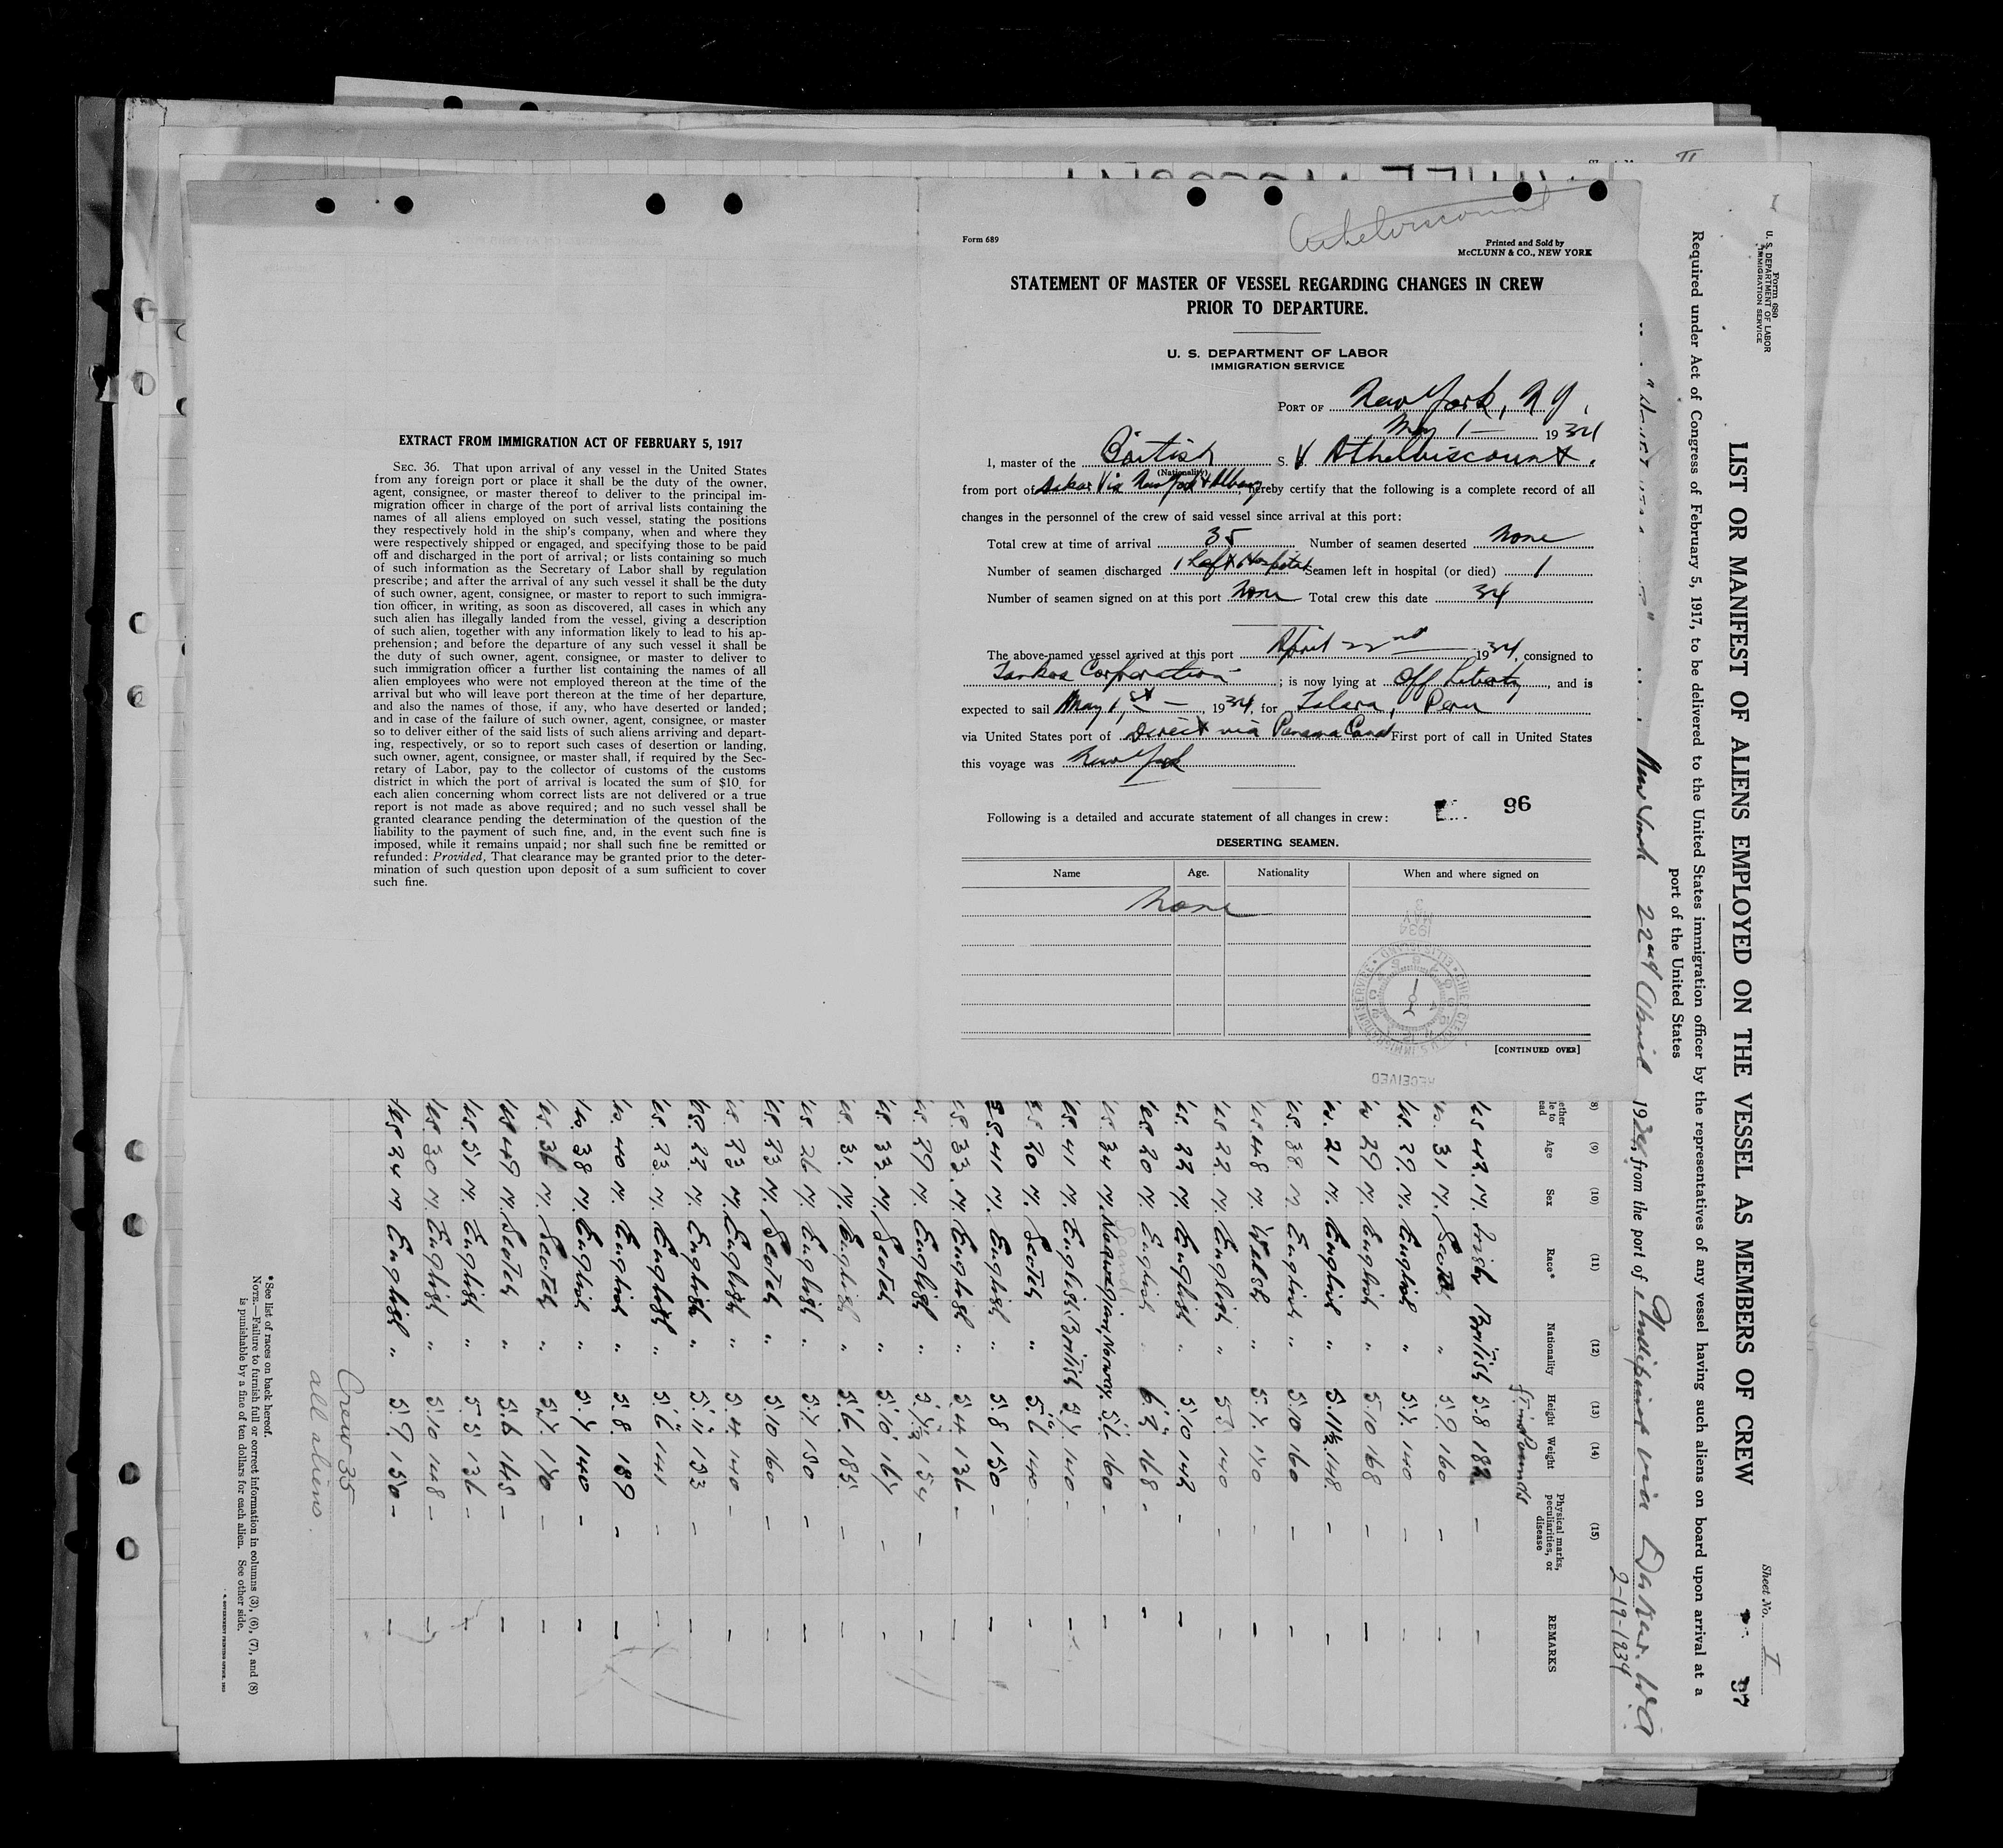 Athelviscount
Form 689
Printed and Sold by
McCLUNN & CO., NEW YORK
STATEMENT OF MASTER OF VESSEL REGARDING CHANGES IN CREW
PRIOR TO DEPARTURE.
U. S. DEPARTMENT OF LABOR
IMMIGRATION SERVICE
PORT OF New York, N Y.
May 1 — 1934
I, master of the British S. V Athelviscount.
(Nationality)
from port of Dakar Via New York & Albany, hereby certify that the following is a complete record of all
changes in the personnel of the crew of said vessel since arrival at this port:
Total crew at time of arrival 35 Number of seamen deserted None
Number of seamen discharged 1 Left Hospital Seamen left in hospital (or died) 1
Number of seamen signed on at this port None Total crew this date 34
The above-named vessel arrived at this port April 22nd 1934, consigned to
Corporation ; is now lying at Off Liberty, and is
expected to sail May 1, st — 1934, for Talara, Peru
via United States port of Direct via Panama Canal First port of call in United States
this voyage was New York
96
Following is a detailed and accurate statement of all changes in crew:
DESERTING SEAMEN.
Name Age. Nationality When and where signed on
None
1934
MAY
3
RECEIVED
[CONTINUED OVER]
EXTRACT FROM IMMIGRATION ACT OF FEBRUARY 5, 1917
SEC. 36. That upon arrival of any vessel in the United States
from any foreign port or place it shall be the duty of the owner,
agent, consignee, or master thereof to deliver to the principal im-
migration officer in charge of the port of arrival lists containing the
names of all aliens employed on such vessel, stating the positions
they respectively hold in the ship's company, when and where they
were respectively shipped or engaged, and specifying those to be paid
off and discharged in the port of arrival; or lists containing so much
of such information as the Secretary of Labor shall by regulation
prescribe; and after the arrival of any such vessel it shall be the duty
of such owner, agent, consignee, or master to report to such immigra-
tion officer, in writing, as soon as discovered, all cases in which any
such alien has illegally landed from the vessel, giving a description
of such alien, together with any information likely to lead to his ap-
prehension; and before the departure of any such vessel it shall be
the duty of such owner, agent, consignee, or master to deliver to
such immigration officer a further list containing the names of all
alien employees who were not employed thereon at the time of the
arrival but who will leave port thereon at the time of her departure,
and also the names of those, if any, who have deserted or landed;
and in case of the failure of such owner, agent, consignee, or master
so to deliver either of the said lists of such aliens arriving and depart-
ing, respectively, or so to report such cases of desertion or landing,
such owner, agent, consignee, or master shall, if required by the Sec-
retary of Labor, pay to the collector of customs of the customs
district in which the port of arrival is located the sum of $10 for
each alien concerning whom correct lists are not delivered or a true
report is not made as above required; and no such vessel shall be
granted clearance pending the determination of the question of the
liability to the payment of such fine, and, in the event such fine is
imposed, while it remains unpaid; nor shall such fine be remitted or
refunded: Provided, That clearance may be granted prior to the deter-
mination of such question upon deposit of a sum sufficient to cover
such fine.
Form 680
U. S. DEPARTMENT OF LABOR
IMMIGRATION SERVICE
Sheet No. I
LIST OR MANIFEST OF ALIENS EMPLOYED ON THE VESSEL AS MEMBERS OF CREW
97
Required under Act of Congress of February 5, 1917, to be delivered to the United States immigration officer by the representatives of any vessel having such aliens on board upon arrival at a
port of the United States
New York 22nd April 1934, from the port of via Dakar. W.A
2-19-1934
(8) (9) (10) (11) (12) (13) (14) (15)
Age Sex Race* Nationality Height Weight Physical marks, peculiarities, or disease REMARKS
Pounds
42 M. Irish British 5.8 182 –
31 M. Scotch " 5.9 160 –
29 M. English " 5.7 140 –
29 M. English " 5.10 168
21 M. English " 5.11½ 148 –
38 M English " 5.10 160 –
48 M. Welsh " 5.7 170 –
22 M. English " 140 –
22 M. English " 5.10 142 –
20 M. English " 168 –
34 M. Norwegian, Norway. 5.6 160 –
41 M. English British 5.7 140 –
20 M. Scotch " 5.6 140 –
41 M. English " 5.8 150 –
33 M. English " 5.4 136 –
29 M. English " 154 –
33 M. Scotch " 5.10 167 –
31 M. English " 5.6 185 –
26 M. English " 5.7 150 –
23 M. Scotch " 5.10 160 –
23 M. English " 5.4 140 –
22 M. English " 133 –
23 M. English " 5.6 141 –
40 M. English " 5.8 189 –
38 M. English " 5.7 140 –
36 M. Scotch " 5.7 170 –
49 M. Scotch " 5.6 145 –
51 M. English " 5.5 136 –
30 M. English " 5.10 148 –
24 M English " 5.9 150 –
Crew 35
all aliens.
*See list of races on back hereof.
NOTE.—Failure to furnish full or correct information in columns (3), (6), (7), and (8)
is punishable by a fine of ten dollars for each alien. See other side.